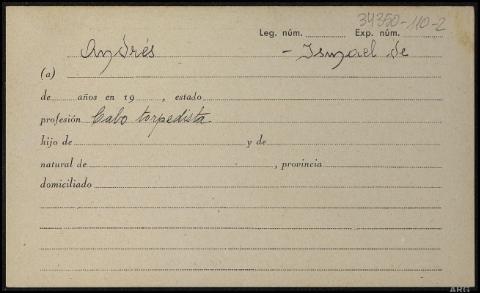 34350-110-2
Leg. núm. Exp. núm.
Andrés - Ismael de
(a)
de años en 19 , estado
profesión Cabo torpedista
hijo de y de
natural de , provincia
domiciliado
ARG